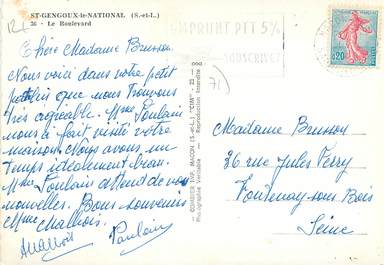 ST-GENGOUX-le-NATIONAL (S.-et-L.)
36 - Le Boulevard
EMPRUNT PTT 5%
SOUSCRIVEZ
0,20
71
Chère Madame Brusson
Nous voici dans votre petit
pays que nous trouvons
très agréable. Mme Poulain
nous a fait visité votre
maison. Nous avons un
temps idéalement beau.
Mme Poulain attend de vos
nouvelles. Bons souvenirs
Mme Malhois
Poulain
COMBIER IMP. MACON (S.-et-L.) "CIM"
Photographie Véritable - Reproduction Interdite
Madame Brusson
36 rue Jules Ferry
Fontenay sous Bois
Seine